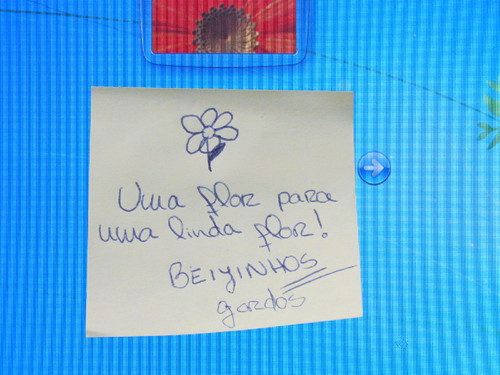 Uma flor para
uma linda flor!
BEIYINHOS
gordos